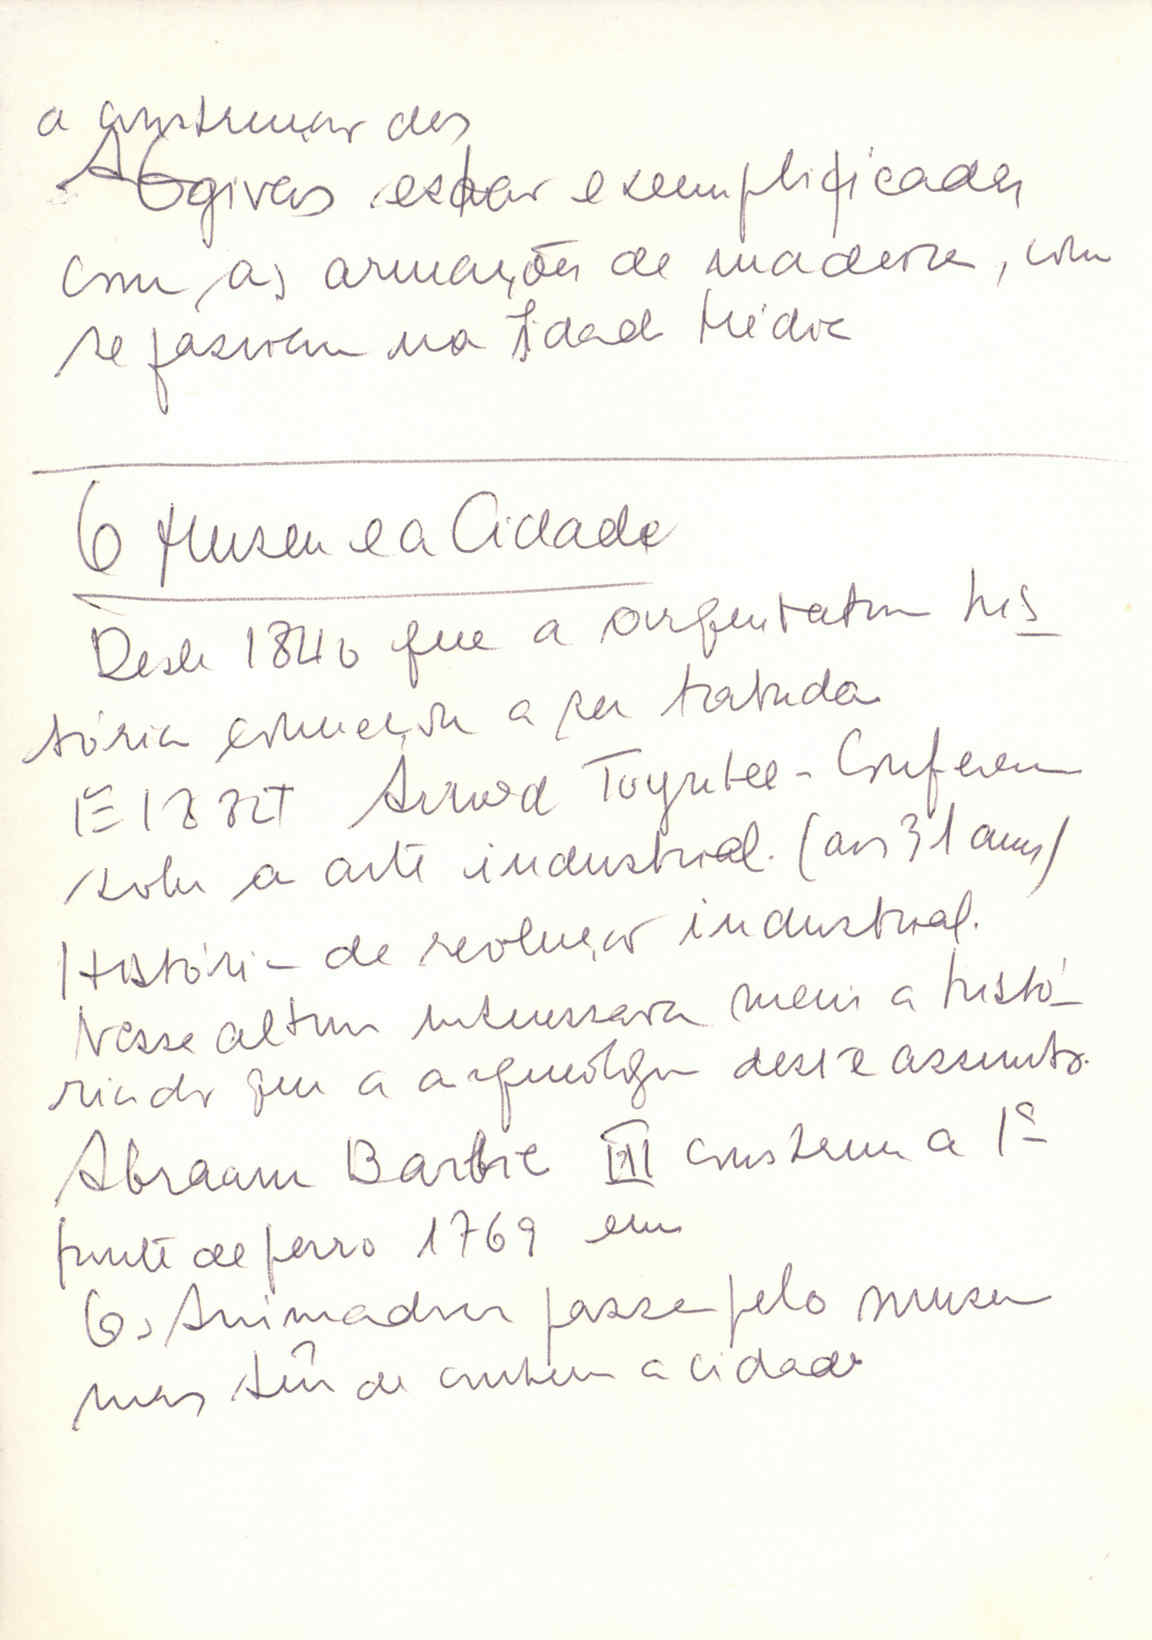 a construção das
Ogivas estão exemplificadas
com as armações de madeira, com
se faziam na Idade Média
O Museu e a Cidade
Desde 1840 que a his
tória começou a ser tratada
Arnold Toynbee - Conferen
sobre a arte industrial. (aos 31 anos)
História de revolução industrial.
Nessa altura interessava mais a histó-
riador que a arqueologia deste assunto.
Abraam III construiu a 1ª
ponte de ferro 1769 em
Os Animadores passa pelo museu
mas têm de a cidade